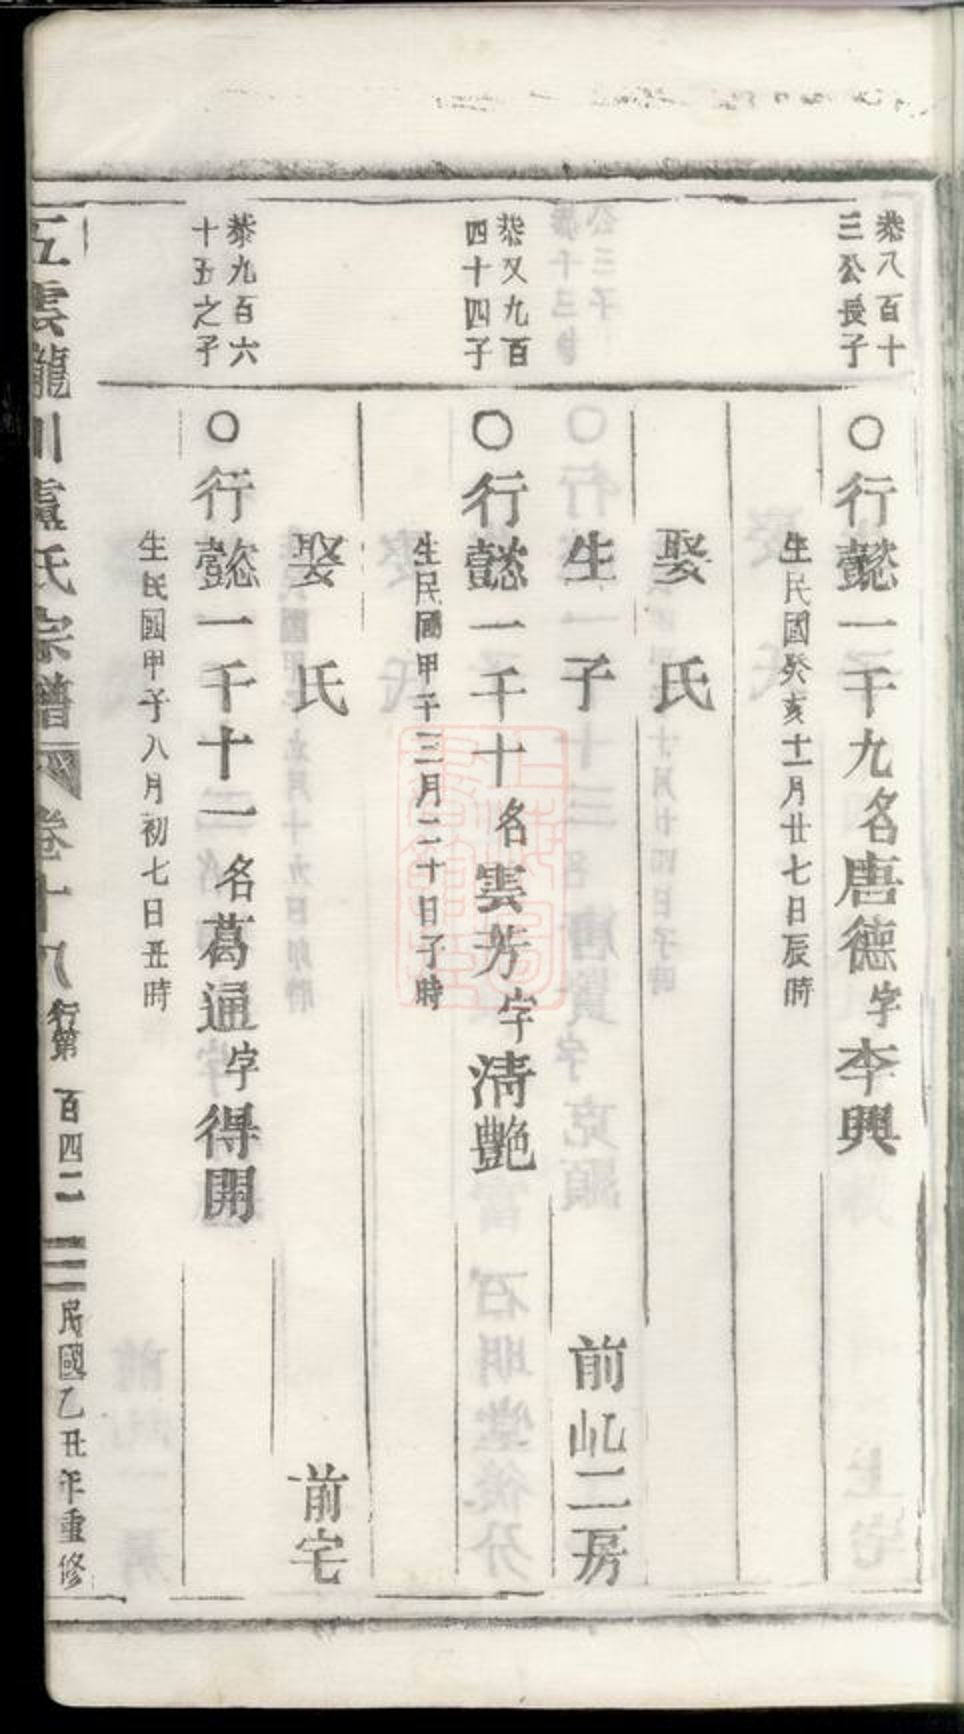 恭八百十
三公長子
○行懿一千九名唐德字李興
生民國癸亥十一月廿七日辰時
娶 氏
生 子 前屺二房
恭又九百
四十四子
○行懿一千十名雲芳字清艷
生民國甲子三月二十日子時
娶 氏 前宅
恭九百六
十五之子
○行懿一千十一名葛通字得開
生民國甲子八月初七日丑時
五雲龍川盧氏宗譜 卷十八 行第 百四二 民國乙丑年重修